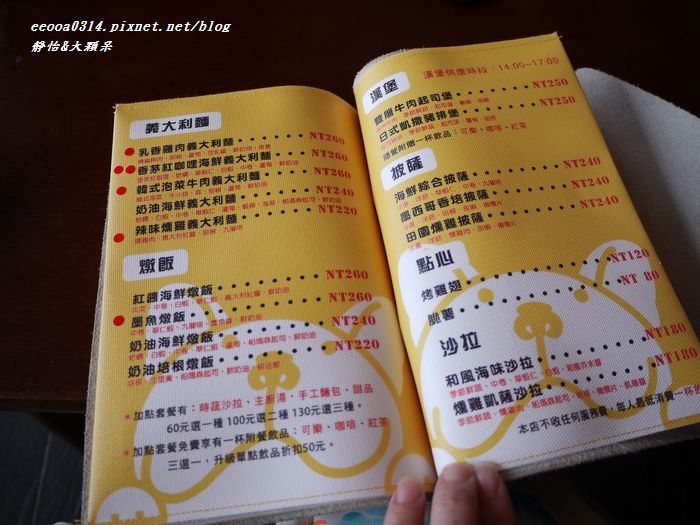 eeooa0314.pixnet.net/blog
靜怡&大顆呆
義大利麵
乳香雞肉義大利麵 NT260
香茅紅咖哩海鮮義大利麵 NT260
韓式泡菜牛肉義大利麵 NT260
奶油海鮮義大利麵 NT240
辣味燻雞義大利麵 NT220
燉飯
紅醬海鮮燉飯 NT260
墨魚燉飯 NT260
奶油海鮮燉飯 NT240
奶油培根燉飯 NT220
*加點套餐有：時蔬沙拉、主廚湯、手工麵包、甜品
60元選一種 100元選二種 130元選三種。
*加點套餐免費享有一杯附餐飲品：可樂、咖啡、紅茶
三選一，升級單點飲品折扣50元。
漢堡 漢堡供應時段：14:00~17:00
雙層牛肉起司堡 NT250
日式凱撒豬排堡 NT250
隨餐附贈一杯飲品：可樂、咖啡、紅茶
披薩
海鮮綜合披薩 NT240
墨西哥香培披薩 NT240
田園燻雞披薩 NT240
點心
烤雞翅 NT120
脆薯 NT 80
沙拉
和風海味沙拉 NT180
季節鮮蔬、中卷、草蝦仁、白蝦、和風芥末醬
燻雞凱薩沙拉 NT180
本店不收任何服務費，每人最低消費一杯飲